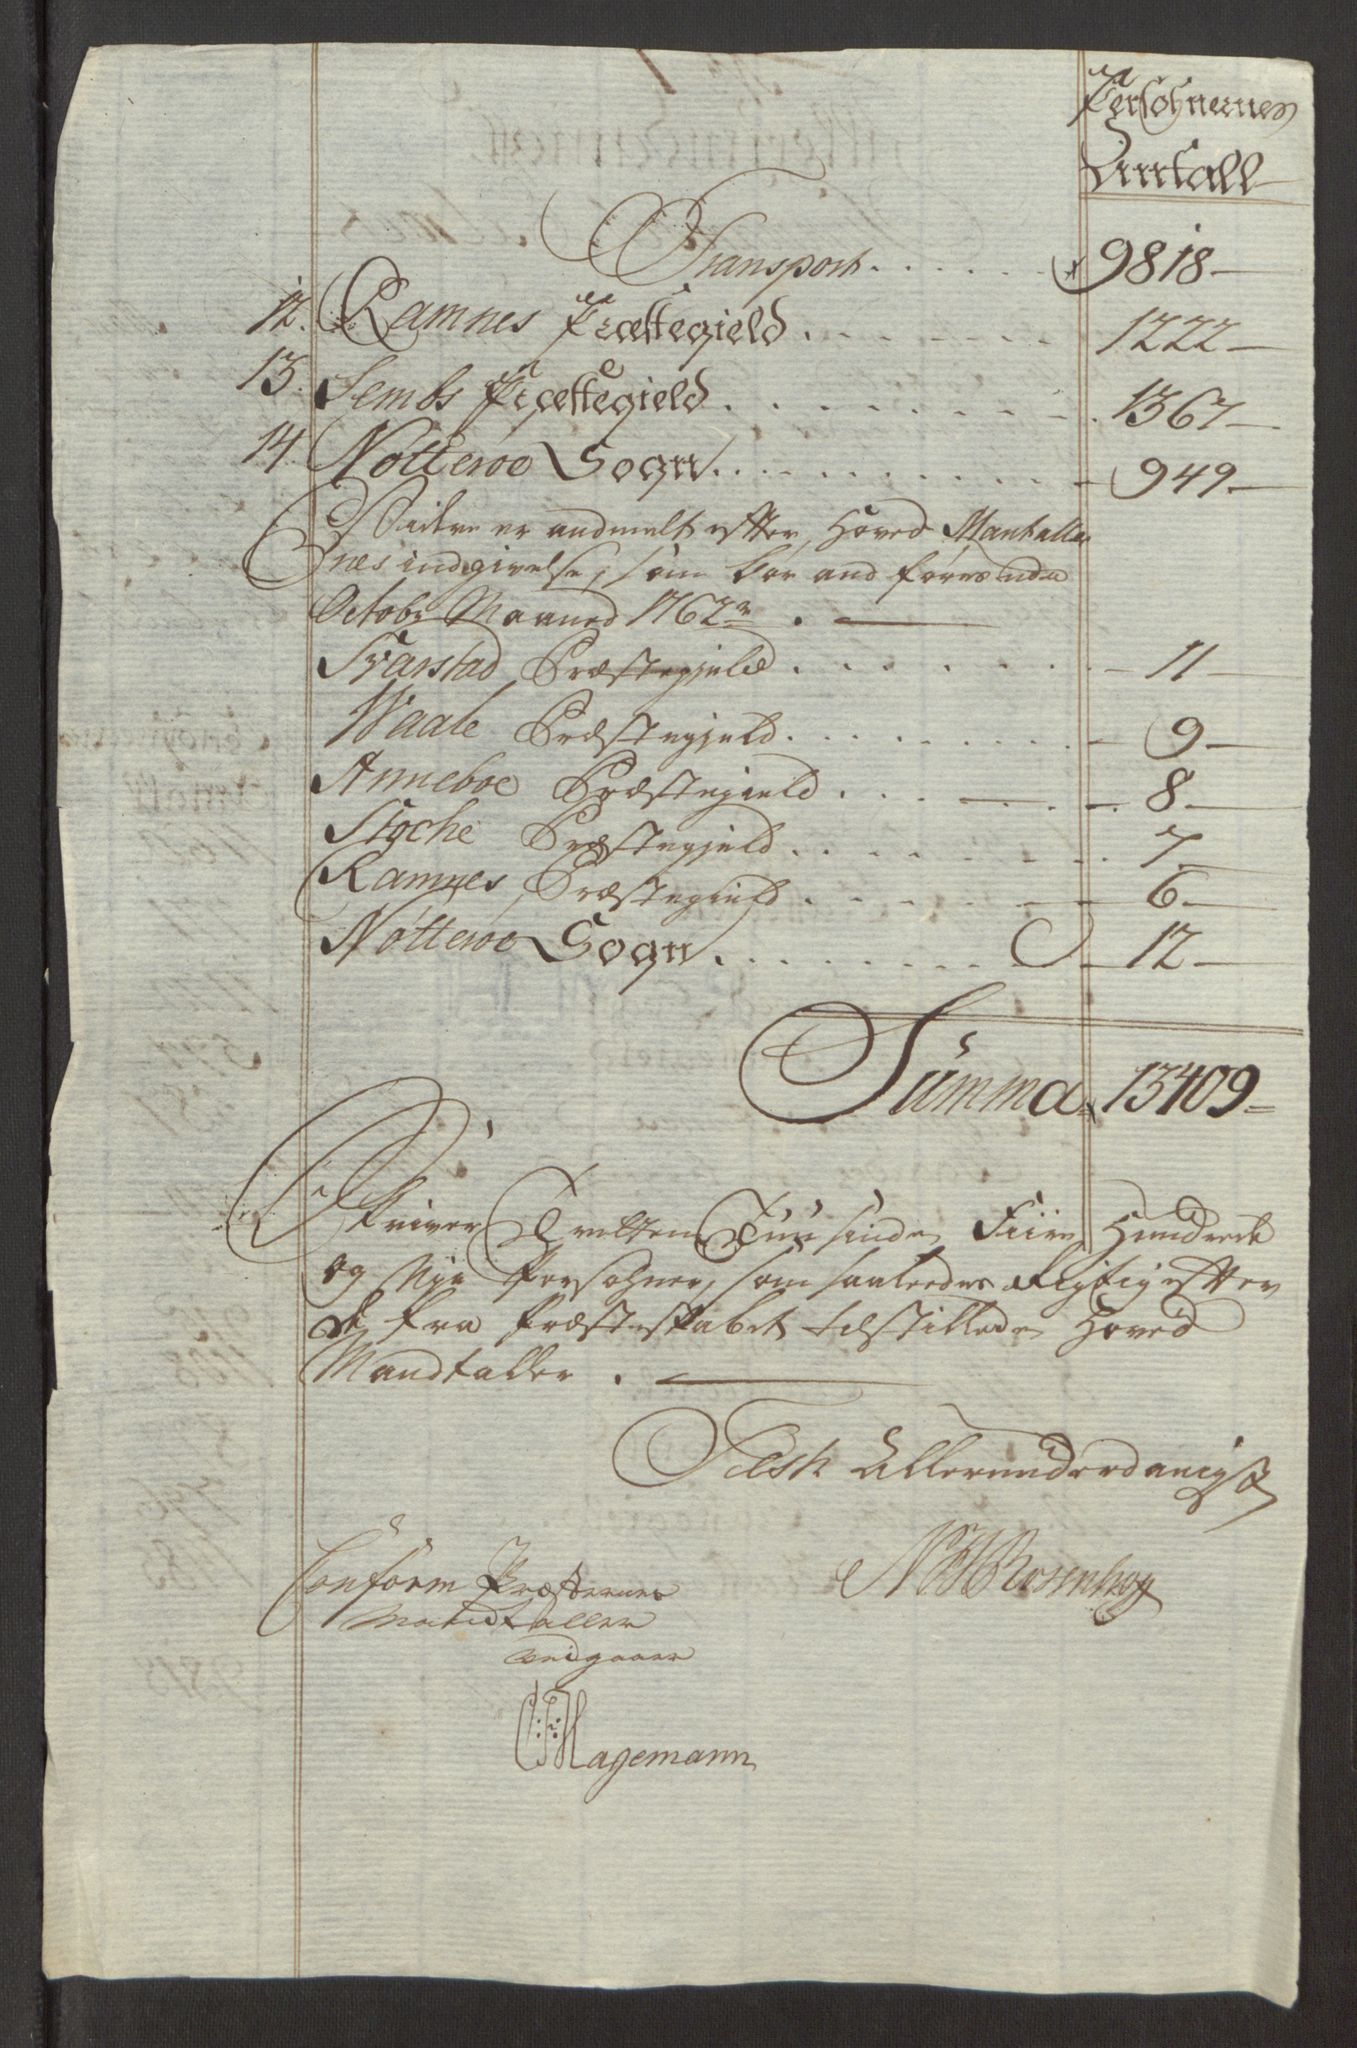 Persohnernes
Antall
Transport . . . . . 9818 –
12. Ramnes Præstegield . . . . . . . 1222 –
13. Sembs Præstegield . . . . . . . . . 1367 –
14. Nötteröe Sogn . . . . . . . . . 949 –
er andmelt efter Hoved Mantaller
nes indgivelse, som
Octobr Maaned 1762 . —
Svarstad Præstegjeld . . . . . . 11 –
Waale Præstegjeld . . . . . . . . 9 –
Anneboe Præstegield . . . . . . 8 –
Stoche Præstegjeld . . . . . . . . 7 –
Ramnes Præstegield . . . . . . 6 –
Nötteröe Sogn . . . . . . . . 12 –
Summa 13409 –
Skriver Tretten Tuusinde, Fiire Hundrede
og Nye Persohner, som saaledes Rigtig efter
de fra Præsteskabet tilstillede Hoved
Mandtaller . —
Test Allerunderdanigst
Conform Præsternes
Mandtaller
Rosenhog
vedgaaer
Hagemann